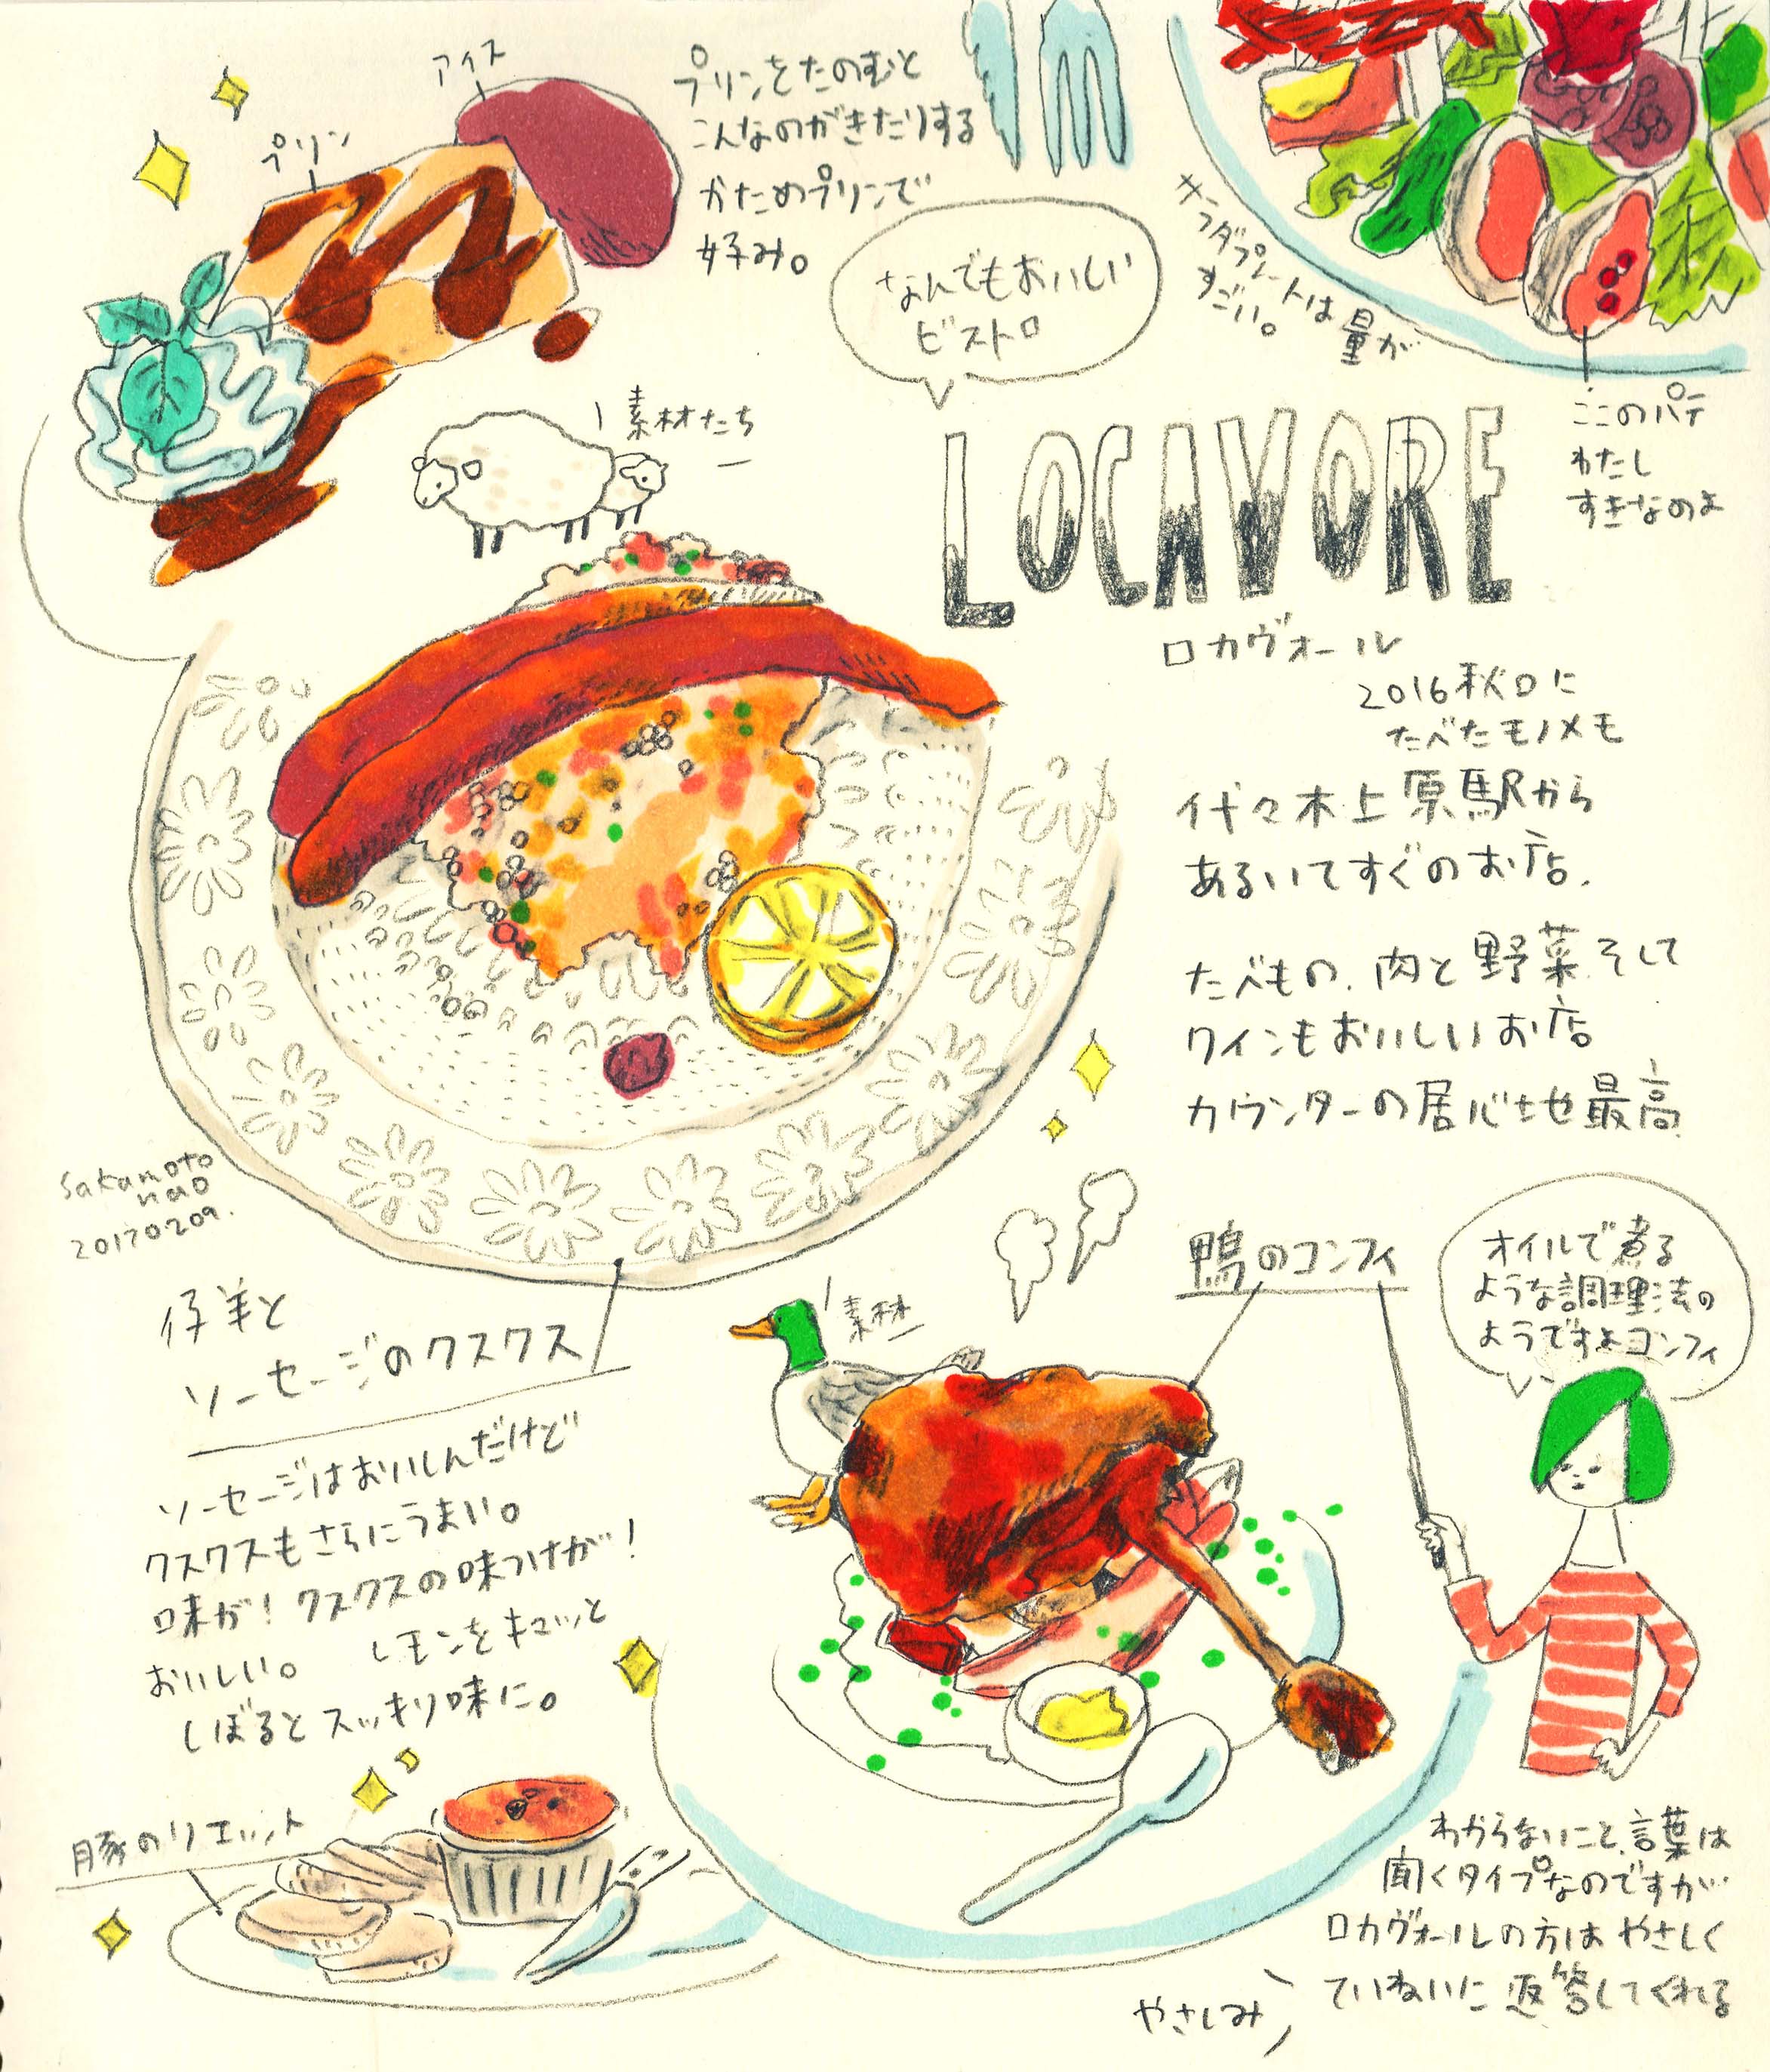 アイス
プリン
プリンをたのむと
こんなのがきたりする
かためプリンで
好み。
なんでもおいしい
ビストロ
サラダプレートは量が
すごい。
ここのパテ
わたし
すきなのよ
素材たち
LOCAVORE
ロカヴォール
2016秋口に
たべたモノメモ
代々木上原駅から
あるいてすぐのお店.
たべもの.肉と野菜.そして
ワインもおいしいお店
カウンターの居心地最高
Sakamoto
nao
20170209.
仔羊と
ソーセージのクスクス
ソーセージはおいしんだけど
クスクスもさらにうまい。
味が!クスクスの味つけが!
おいしい。
レモンをキュッと
しぼるとスッキリ味に。
素材
鴨のコンフィ
オイルで煮る
ような調理法の
ようですよコンフィ
豚のリエット
わからないこと.言葉は
聞くタイプなのですが…
ロカヴォールの方はやさしく
ていねいに返答してくれる
やさしみ